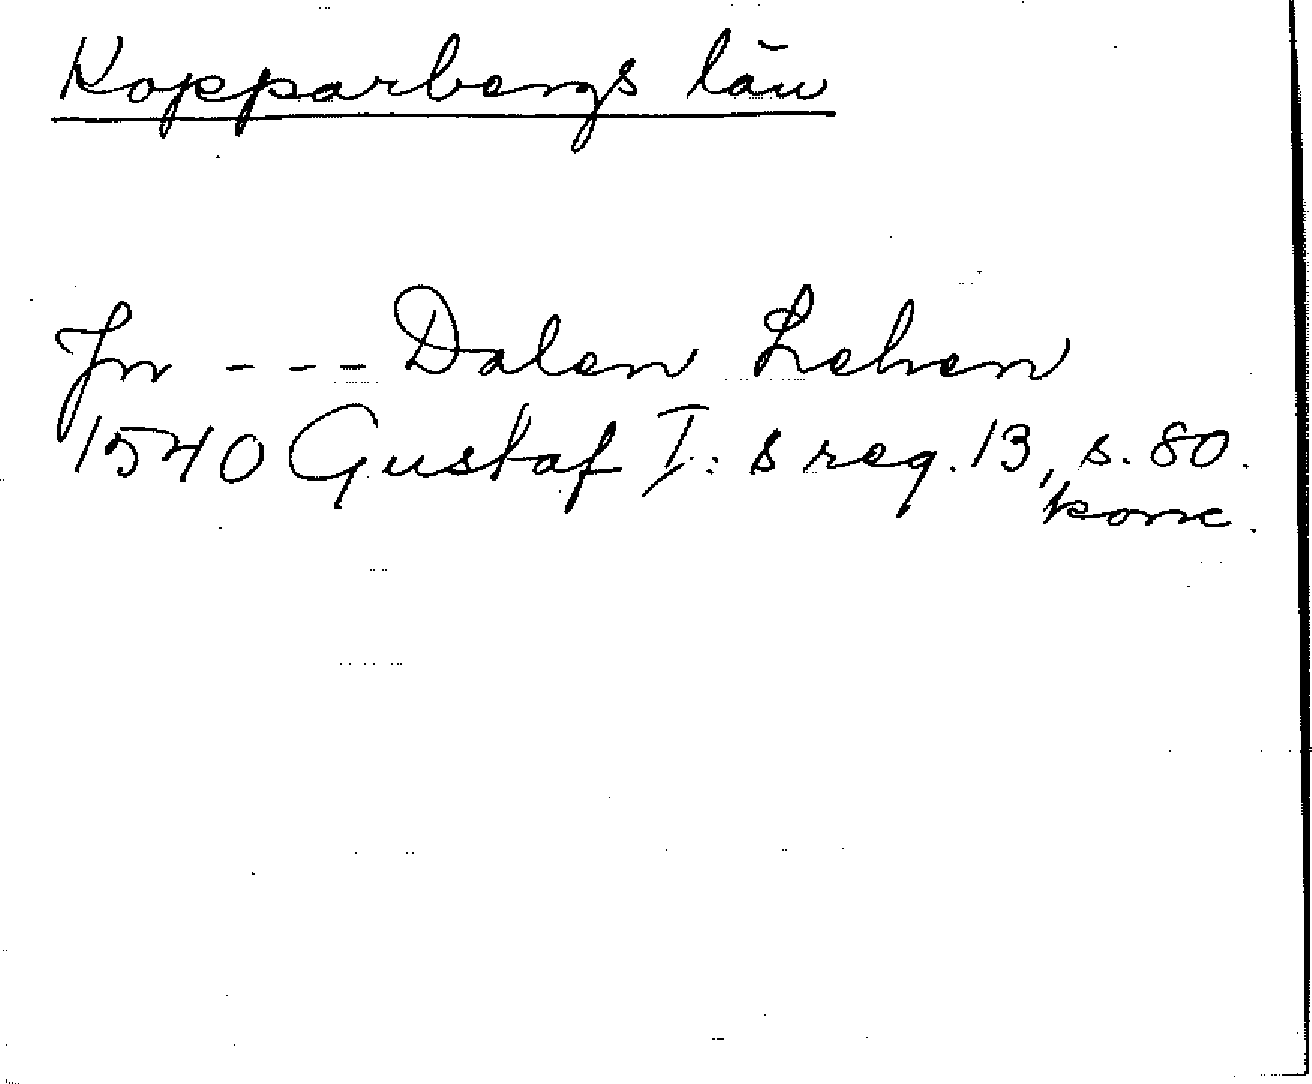 Kopparbergs län
Jn --- Dalen Lehen
1540 Gustaf I:s reg. 13, s. 80.
konc.